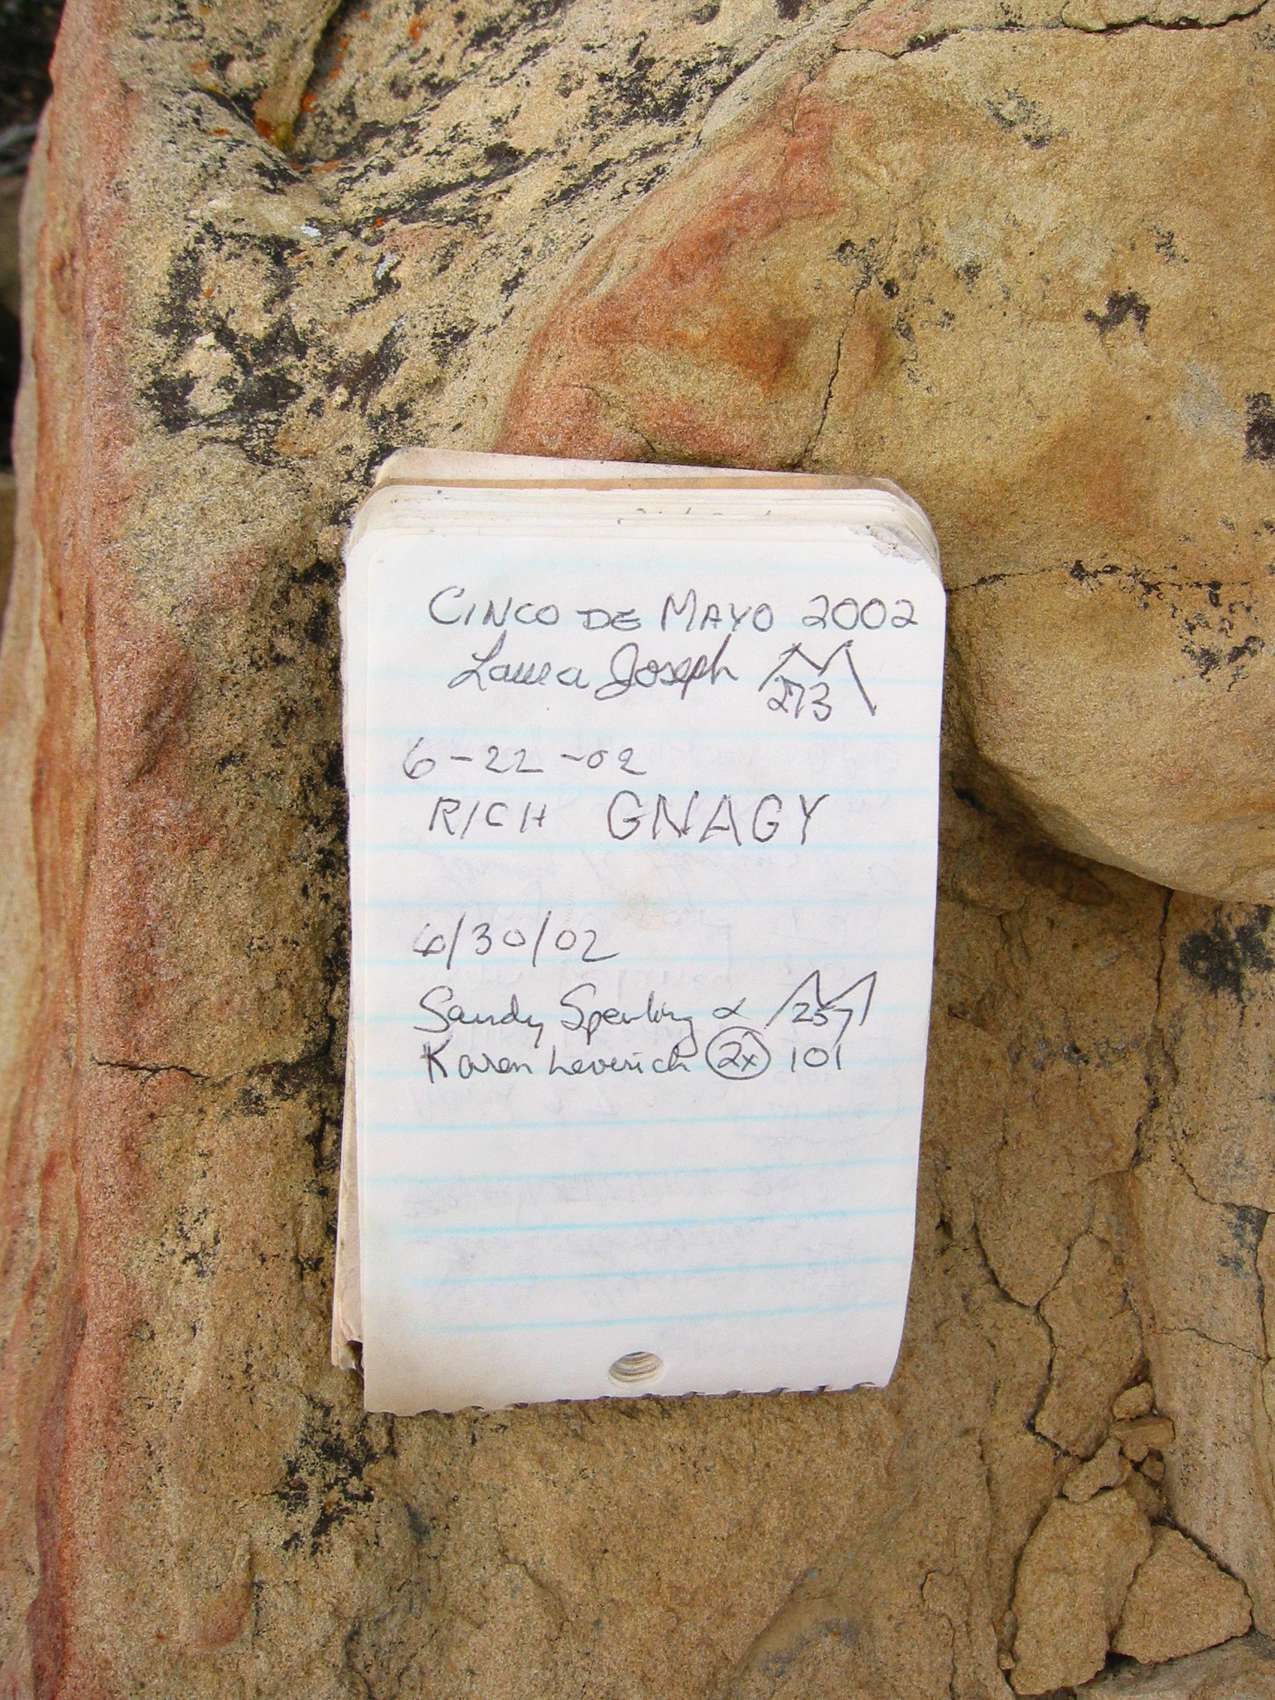 CINCO DE MAYO 2002
Laura Joseph 273
6-22-02
RICH GNAGY
6/30/02
Sandy Sperling & 257
Karen Leverich 2x 101